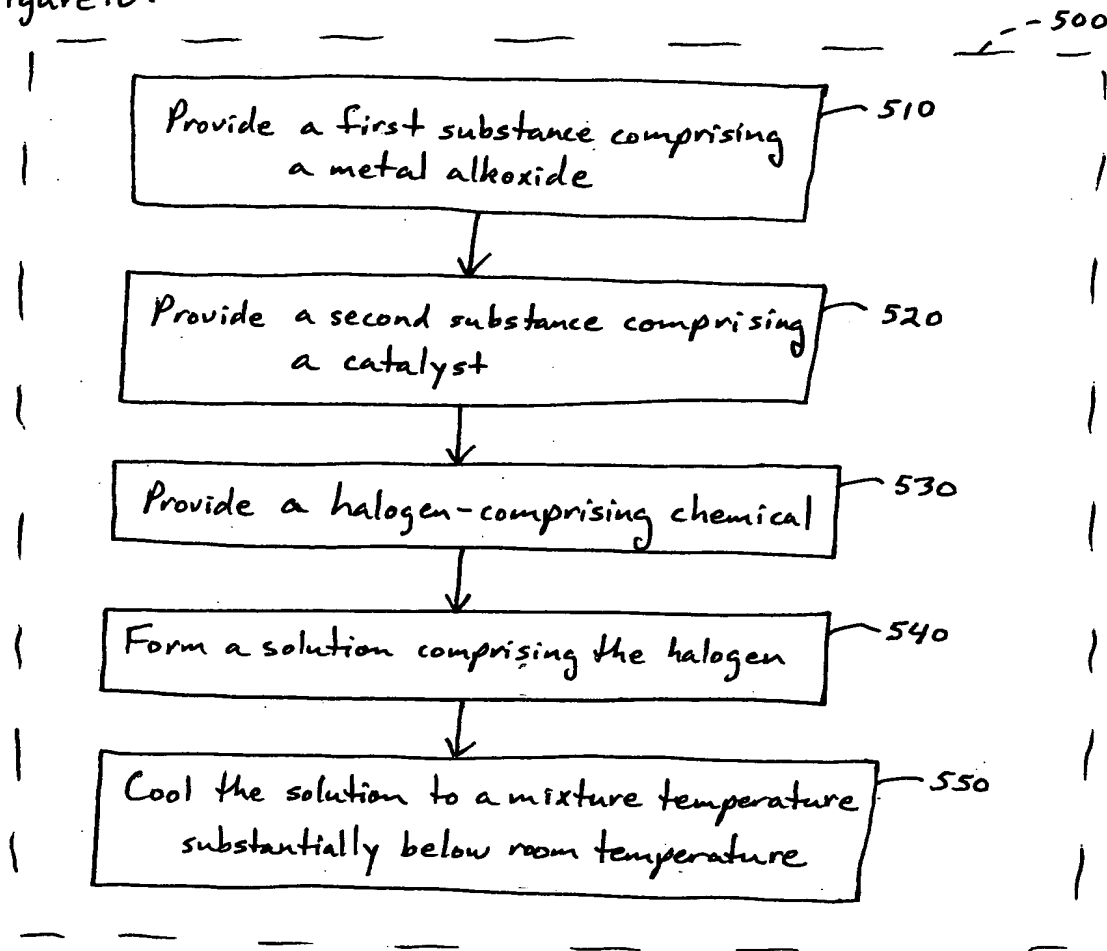 500
Provide a first substance comprising
a metal alkoxide
510
Provide a second substance comprising
a catalyst
520
Provide a halogen-comprising chemical
530
Form a solution comprising the halogen
540
Cool the solution to a mixture temperature
substantially below room temperature
550